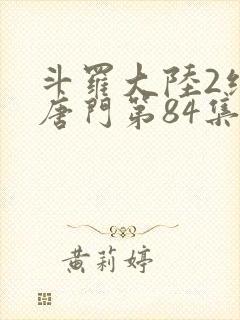 斗羅大陸2絕
唐門第84集
黃莉婷